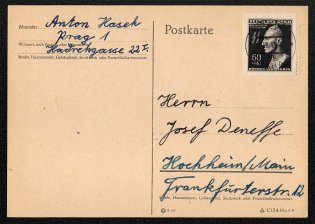 Absender: Anton Hasek
Prag 1
Hadrekgasse 22
Straße, Hausnummer, Gebäudeteil, Stockwerk oder Postschließfachnummer
Postkarte
DEUTSCHES REICH
60
Herrn
Josef Deneffe
Hochheim/Main
Frankfurterstr. 12
Straße, Hausnummer, Gebäudeteil, Stockwerk oder Postschließfachnummer